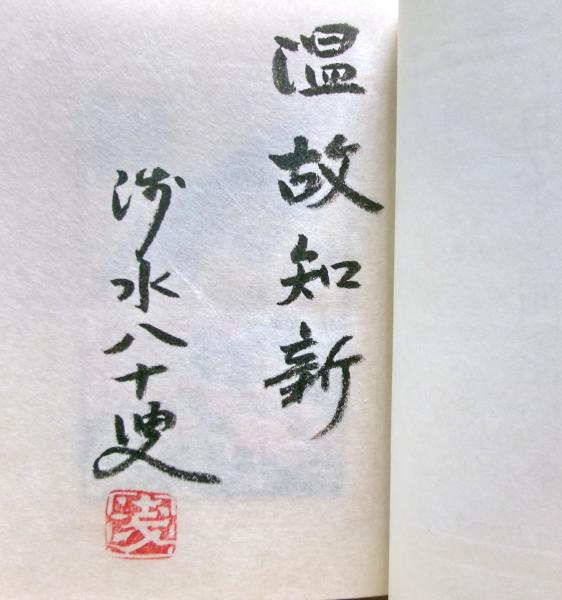 温故知新
渉水八十叟